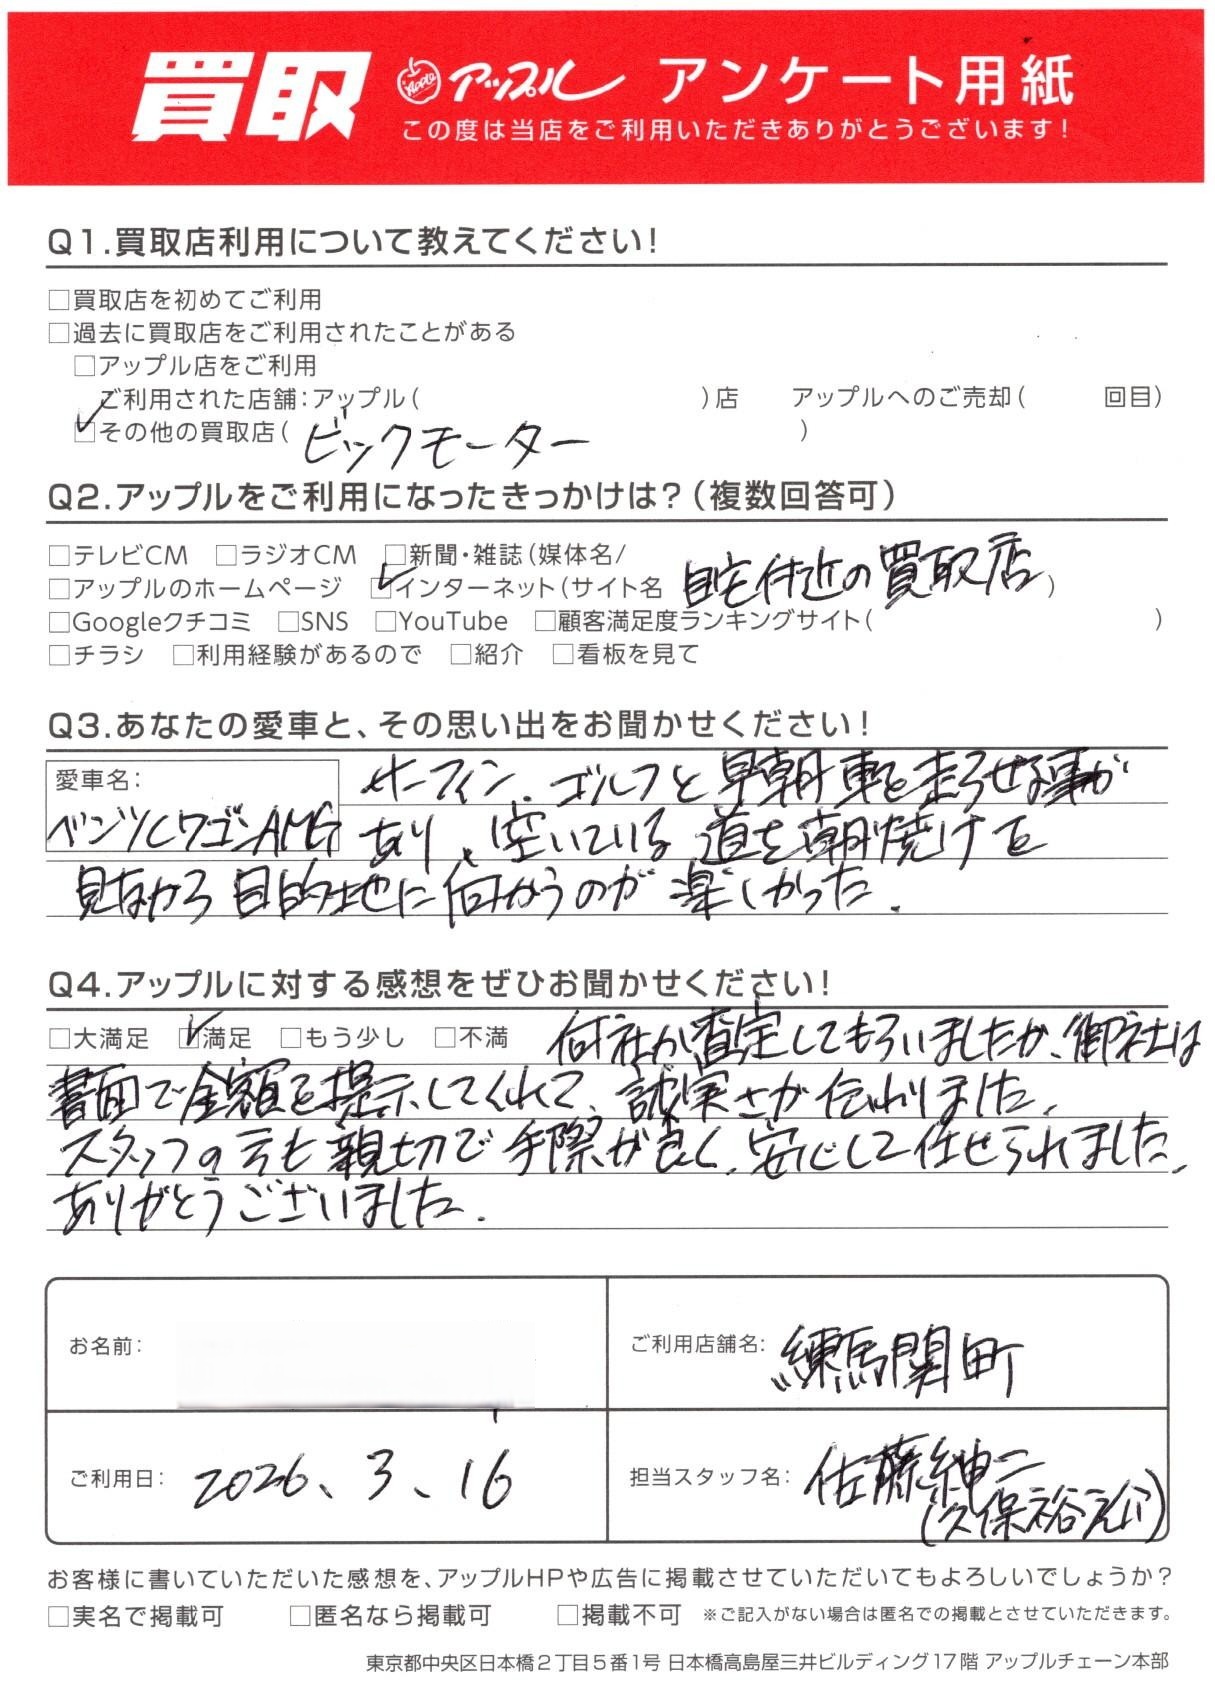 買取 Apple アップル アンケート用紙
この度は当店をご利用いただきありがとうございます!
Q1.買取店利用について教えてください!
□買取店を初めてご利用
□過去に買取店をご利用されたことがある
□アップル店をご利用
ご利用された店舗:アップル( )店 アップルへのご売却( 回目)
☑その他の買取店( ビックモーター )
Q2.アップルをご利用になったきっかけは?(複数回答可)
□テレビCM □ラジオCM □新聞・雑誌(媒体名/
□アップルのホームページ ☑インターネット(サイト名 自宅付近の買取店 )
□Googleクチコミ □SNS □YouTube □顧客満足度ランキングサイト( )
□チラシ □利用経験があるので □紹介 □看板を見て
Q3.あなたの愛車と、その思い出をお聞かせください!
愛車名: サーフィン、ゴルフと早朝車を走らせる事が
ベンツCワゴンAMG あり、空いている道を朝焼けを
見ながら目的地に向かうのが楽しかった。
Q4.アップルに対する感想をぜひお聞かせください!
□大満足 ☑満足 □もう少し □不満 何社か査定してもらいましたが、御社は
書面で金額を提示してくれて、誠実さが伝わりました。
スタッフの方も親切で手際が良く、安心して任せられました。
ありがとうございました。
お名前: ご利用店舗名: 練馬関町
ご利用日: 2026、3、16 担当スタッフ名: 佐藤紳二
(久保裕)
お客様に書いていただいた感想を、アップルHPや広告に掲載させていただいてもよろしいでしょうか?
□実名で掲載可 □匿名なら掲載可 □掲載不可 ※ご記入がない場合は匿名での掲載とさせていただきます。
東京都中央区日本橋2丁目5番1号 日本橋高島屋三井ビルディング17階 アップルチェーン本部